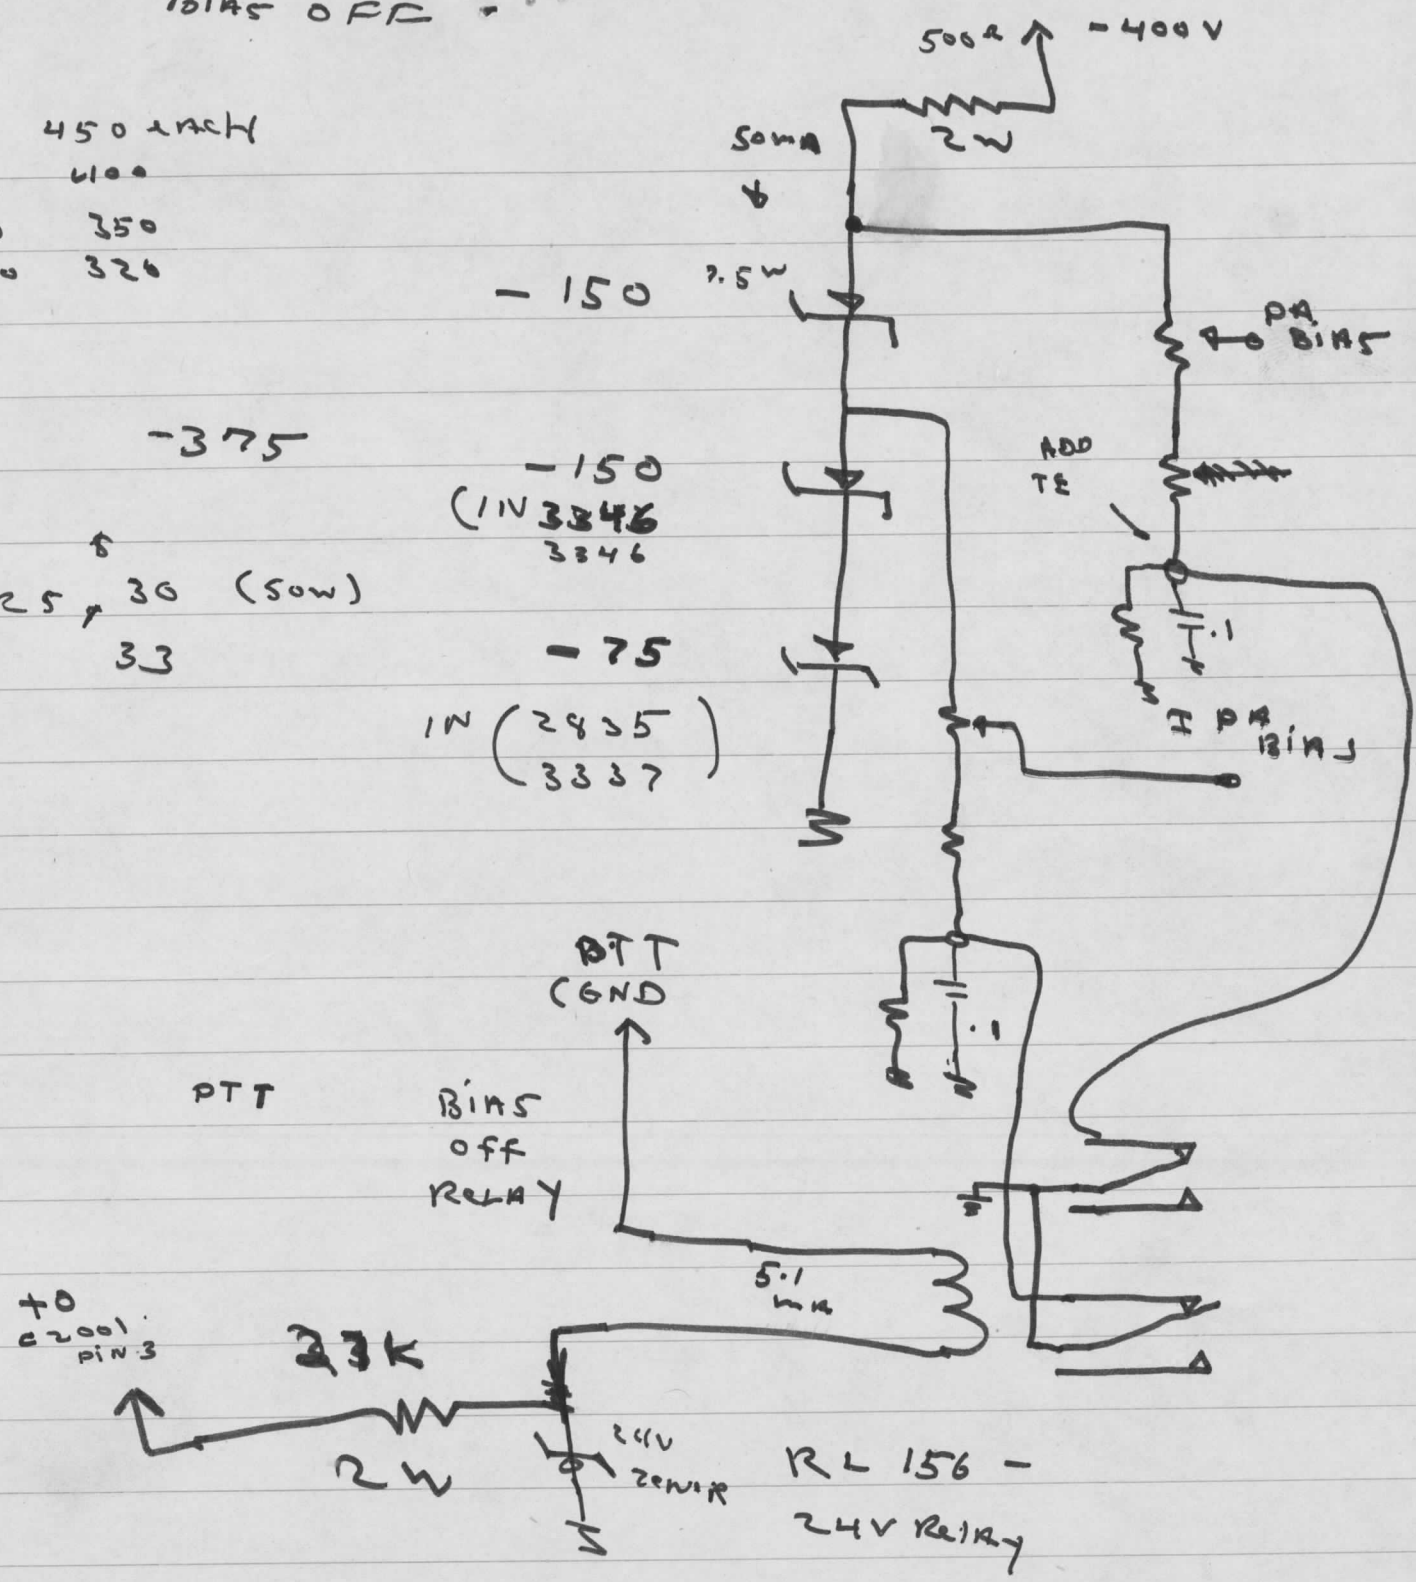 BIAS OFF
500Ω
-400V
2W
450 EACH
400
350
320
50mA
7.5W
-150
PA
BIAS
-375
-150
(IN 3346
3346
ADD
TE
25, 30 (50W)
33
-75
IN (2835
3337)
.1
I PA
BIAS
BTT
(GND
.1
PTT
BIAS
OFF
RELAY
5.1
mA
+0
C2001
PIN 3
33K
2W
24V
ZENER
RL 156 -
24V Relay